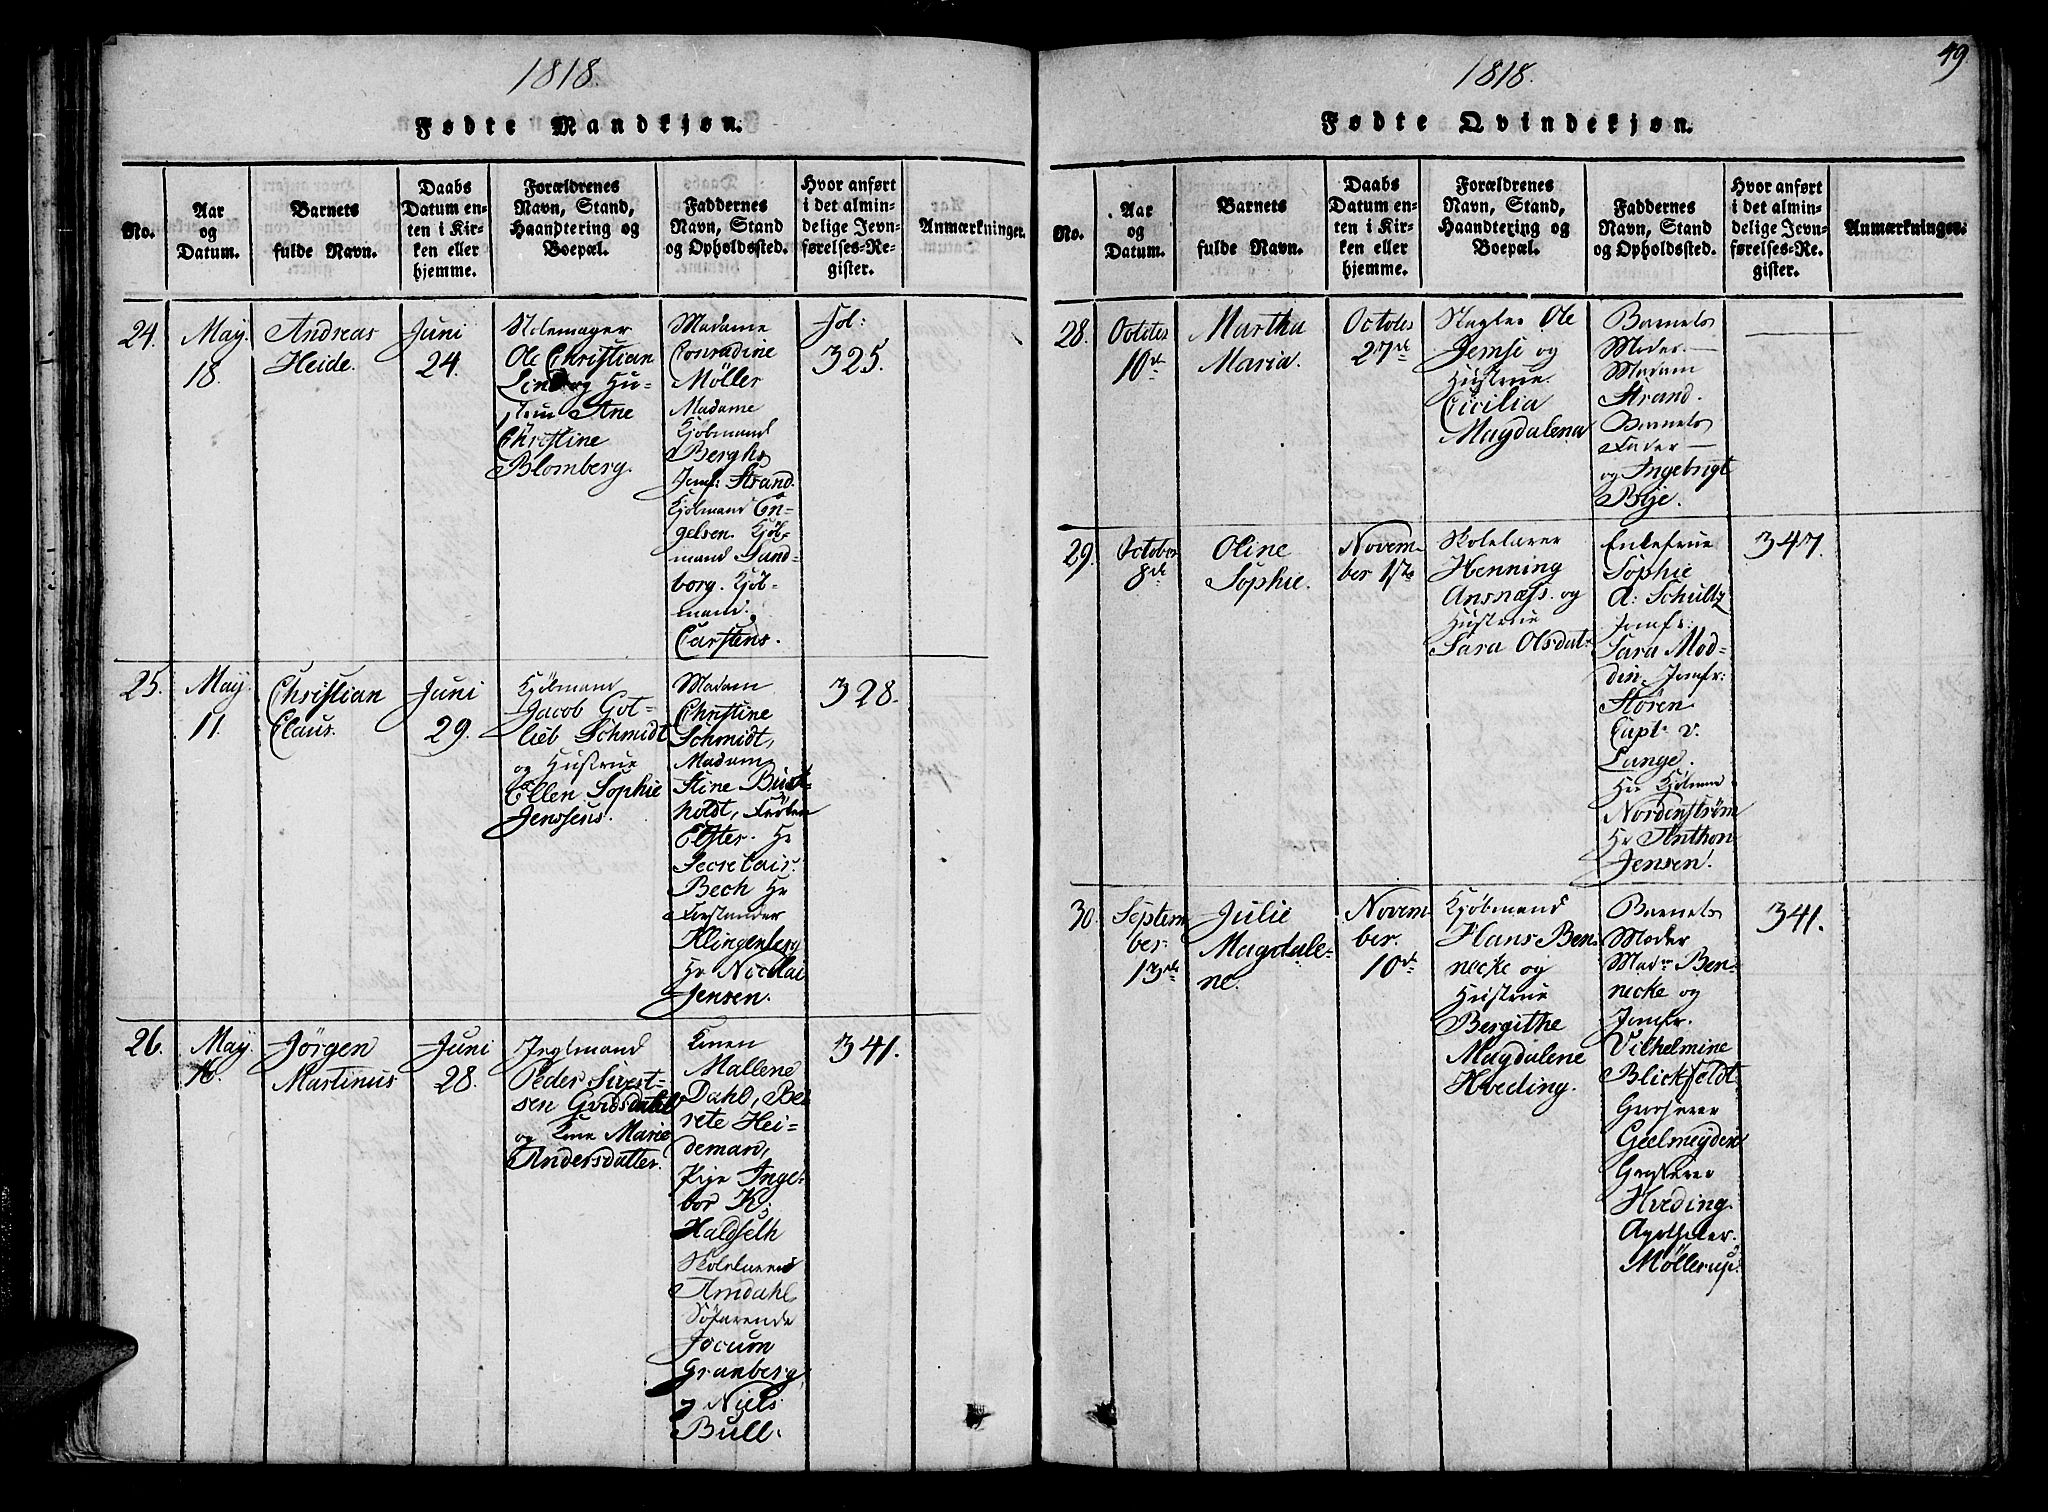 1818.
Fødte Mandkjøn.
No.
Aar
og
Datum.
Barnets
fulde Navn.
Daabs
Datum en-
ten i Kir-
ken eller
hjemme.
Forældrenes
Navn, Stand,
Haandtering og
Boepæl.
Faddernes
Navn, Stand
og Opholdssted.
Hvor anført
i det almin-
delige Jevn-
førelses-Re-
gister.
Anmærkninger.
24.
May
18.
Andreas
Heide.
Juni
24.
Stolemager
Ole Christian
og Hu-
strue Ane
Christine
Blomberg.
Madame
Conradine
Møller
Madame
Kjøbmand
Berghs
Jomf: Strand.
Kjøbmand En-
gelsen. Kjøb-
mand Sund-
borg. Kjøb-
mand.
Carstens.
fol:
325.
25.
May
11.
Christian
Claus.
Juni
29.
Kjøbmand
Jacob Got-
lieb Schmidt
og Hustrue
Ellen Sophie
Jenssens.
Madam
Christine
Schmidt,
Madam
Stine Buck-
holdt, Frøken
Elster. Hr
Secretair.
Bech Hr
Forstander
Klingenberg
Hr Nicolai
Jensen.
328.
26.
May
16.
Jørgen
Martinus
Juni
28.
Inglmand
Peder Sivert-
sen
og Kone Marie
Andersdatter.
Konen
Mallene
Dahl, Be-
rete Hei-
deman,
Pige Inge-
bor K.
Haldseth
Skolelærer
Amdahl
Søfarende
Jocum
Granberg
og Niels
Bull.
341.
49
1818.
Fødte Qvindekjøn.
No.
Aar
og
Datum.
Barnets
fulde Navn.
Daabs
Datum en-
ten i Kir-
ken eller
hjemme.
Forældrenes
Navn, Stand,
Haandtering og
Boepæl.
Faddernes
Navn, Stand
og Opholdssted.
Hvor anført
i det almin-
delige Jevn-
førelses-Re-
gister.
Anmærkninger.
28.
October
10de
Martha
Maria.
October
27de
Slagter Ole
Jemse og
Hustrue.
Cicilia
Magdalena
Barnets
Moder.
Madam
Strand.
Barnets
Fader
og Ingebrigt
Bye.
29.
October
8de
Oline
Sophie.
Novem-
ber 1ste
Skolelærer
Henning
Ansnæss. og
Hustrue
Sara Olsdat.
Enkefrue
Sophie
A: Schultz
Jomfr:
Sara Mod-
din. Jomfr:
Støren
Capt. v.
Lange.
Hr Kjøbmand
Nordenstrøm
Hr Anthon
Jensen.
347.
30.
Septem
ber.
13de
Julie
Magdale-
ne.
Novem-
ber.
10de
Kjøbmand
Hans Ben-
necke og
Hustrue
Bergithe
Magdalene
Hveding.
Barnets
Moder
Madm Ben-
necke og
Jomfr.
Vilhelmine
Blickfeldt
Grosserer
Geelmeyden
Grosserer
Hveding.
Apotheker.
Møllerup.
341.